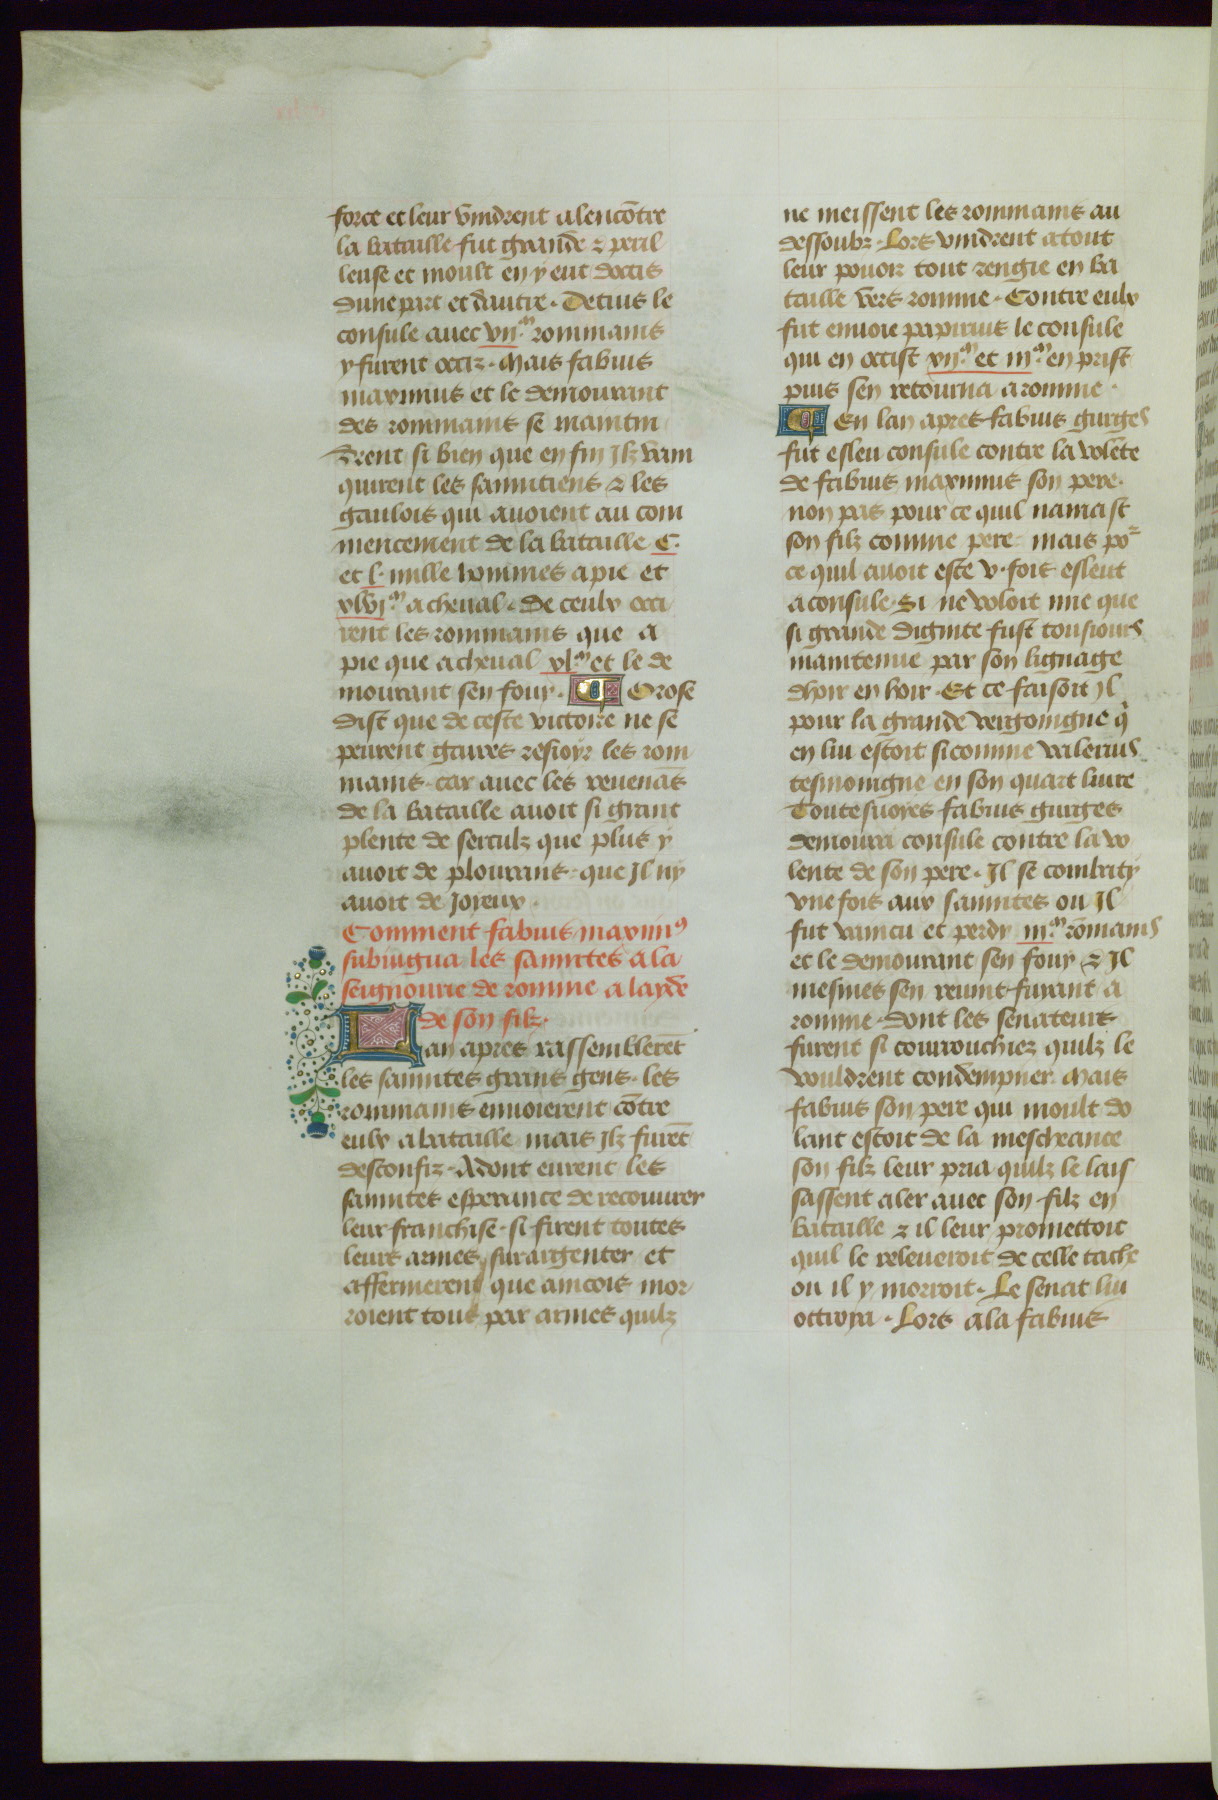 force et leur vindrent alencõtre
la bataille fut grande ⁊ peril
leuse et moult en y eut doccis
dune part et dautre. Decius le
consule auec vij.ᵐ rommains
y furent occiz. Mais fabius
maximus et le demourant
des rommains se maintin
drent si bien que en fin Ilz vain
quirent les sannitiens ⁊ les
gaulois qui auoient au com
mencement de la bataille C.
et l. mille hommes a pie et
xlvj.ᵐ a cheual. de ceulx occi
rent les rommains que a
pie que a cheual xl.ᵐ et le de
mourant sen fouy. Orose
dist que de ceste victoire ne se
peurent gaires resioyr les rom
mains. car auec les reuenãs
de la bataille auoit si grant
plente de serculz que plus y
auoit de plourans. que Il ny
auoit de Joyeux.
Comment fabius maximꝰ
subiugua les sannites a la
seigniourie de romme a layde
de son filz.
Lan apres rassemblerẽt
les sannites grans gens. les
rommains enuoierent cõtre
eulx a bataille. mais Ilz furẽt
desconfiz. Adont eurent les
sannites esperance de recouurer
leur franchise. si firent toutes
leurs armes surargenter et
affermerent que aincois mor
roient tous par armes quilz
ne meissent les rommains au
dessoubz. Lors vindrent a tout
leur pouoir tout rengie en ba
taille vers romme. Contre eulx
fut enuoie papirius le consule
qui en occist xij.ᵐ et iij.ᵐ en prist
puis sen retourna a romme.
En lan apres fabius gurges
fut esleu consule contre la volẽte
de fabius maximus son pere.
non pas pour ce quil namast
son filz comme pere. mais poʳ
ce quil auoit este v. fois esleut
a consule. Si ne voloit mie que
si grande dignite fust tousiours
maintenue par son lignage
dhoir en hoir. Et ce faisoit Il
pour la grande vergoingne q̃
en lui estoit sicomme valerius
tesmoingne en son quart liure
Toutesuoyes fabius gurges
demoura consule contre la vo
lente de son pere. Il se combaty
vne fois aux sannites ou Il
fut vaincu et perdy iij.ᵐ rõmains
et le demourant sen fouy ⁊ Il
mesmes sen reuint fuiant a
romme. dont les senateurs
furent si courrouchiez quilz le
vouldrent condempner. Mais
fabius son pere qui moult do
lant estoit de la mescheance
son filz leur pria quilz le lais
sassent aler auec son filz en
bataille ⁊ il leur promettoit
quil le releueroit de celle tache
ou il y morroit. Le senat lui
ottroya. Lors ala fabius